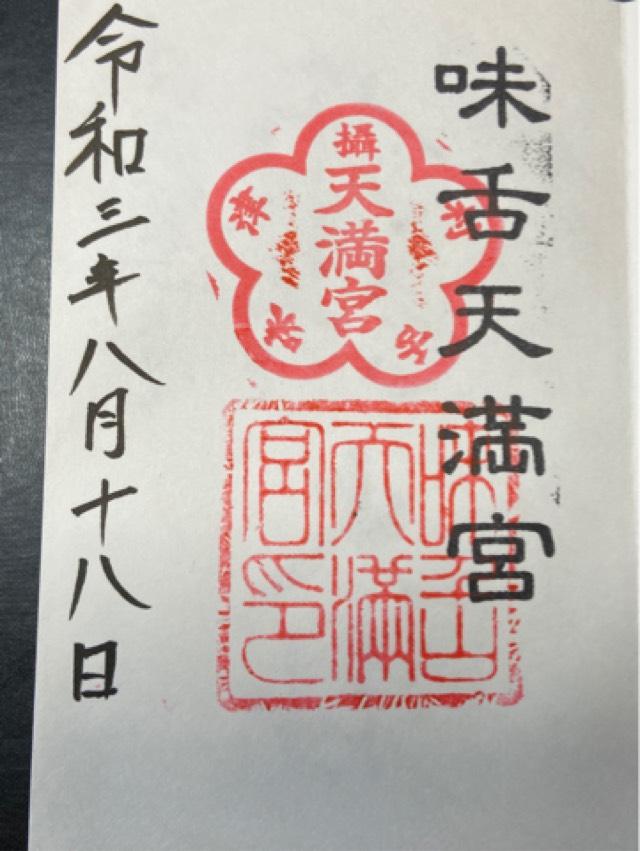 味舌天満宮
攝
津
村
天満宮
味舌
天満
宮印
令和三年八月十八日